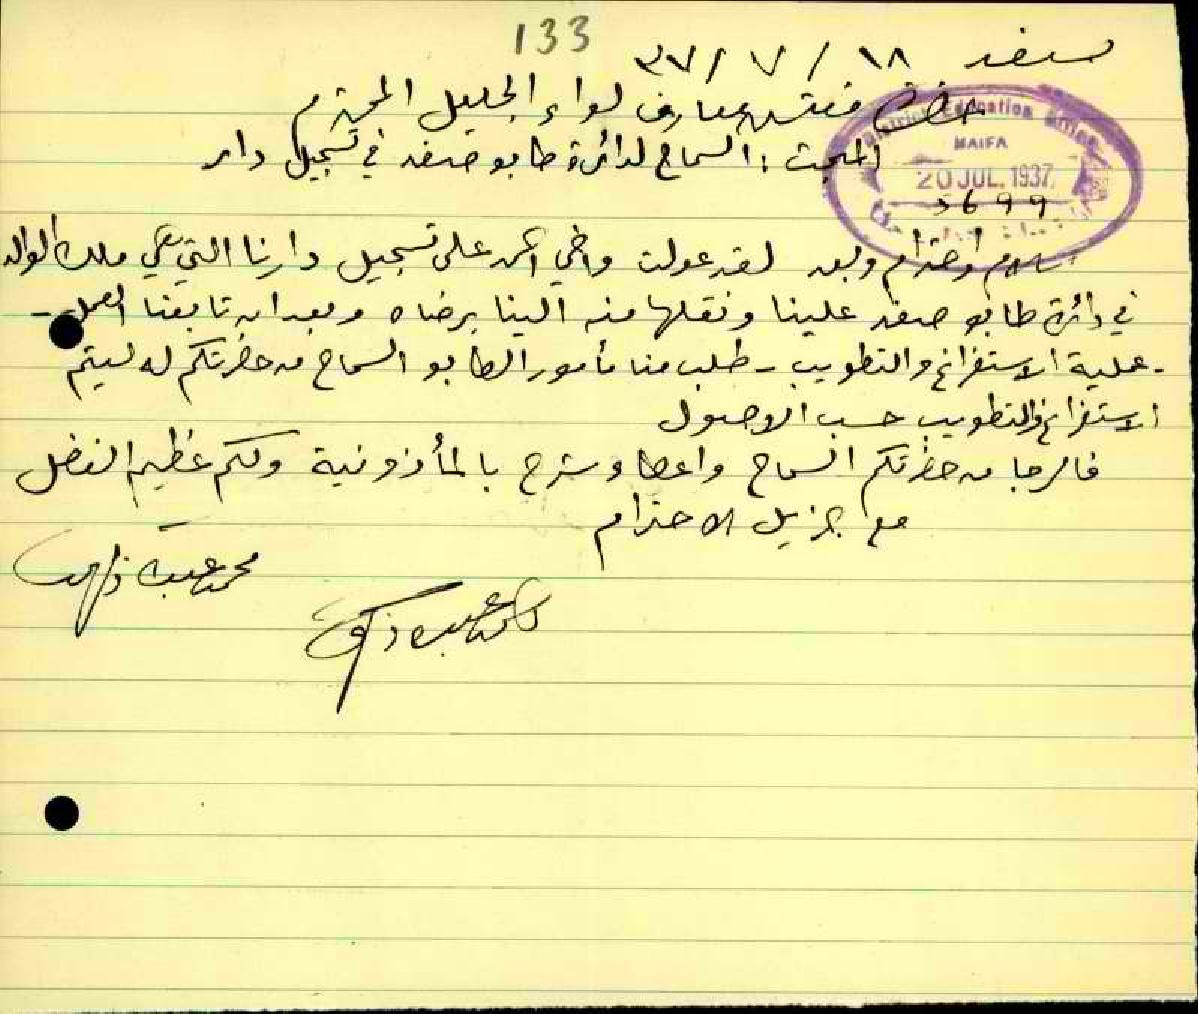 133
صفد ١٨ / ٧ / ٣٧
حضرة مفتش معارف لواء الجليل المحترم
المبحث : السماح لدائرة طابو صفد في تسجيل دار
District Education Office
HAIFA
20 JUL. 1937
3699
سلام واحترام وبعد لقد عولت واخي احمد على تسجيل دارنا التي هي ملك الوالد
في دائرة طابو صفد علينا ونقلها منه الينا برضاه وبعد ان تابعنا العمل -
- عملية الاستفراغ والتطويب - طلب منا مأمور الطابو السماح من حضرتكم له ليتم
الاستفراغ والتطويب حسب الاصول
فالرجا من حضرتكم السماح واعطاء شرح بالمأذونية ولكم عظيم الفضل
مع جزيل الاحترام
محمد